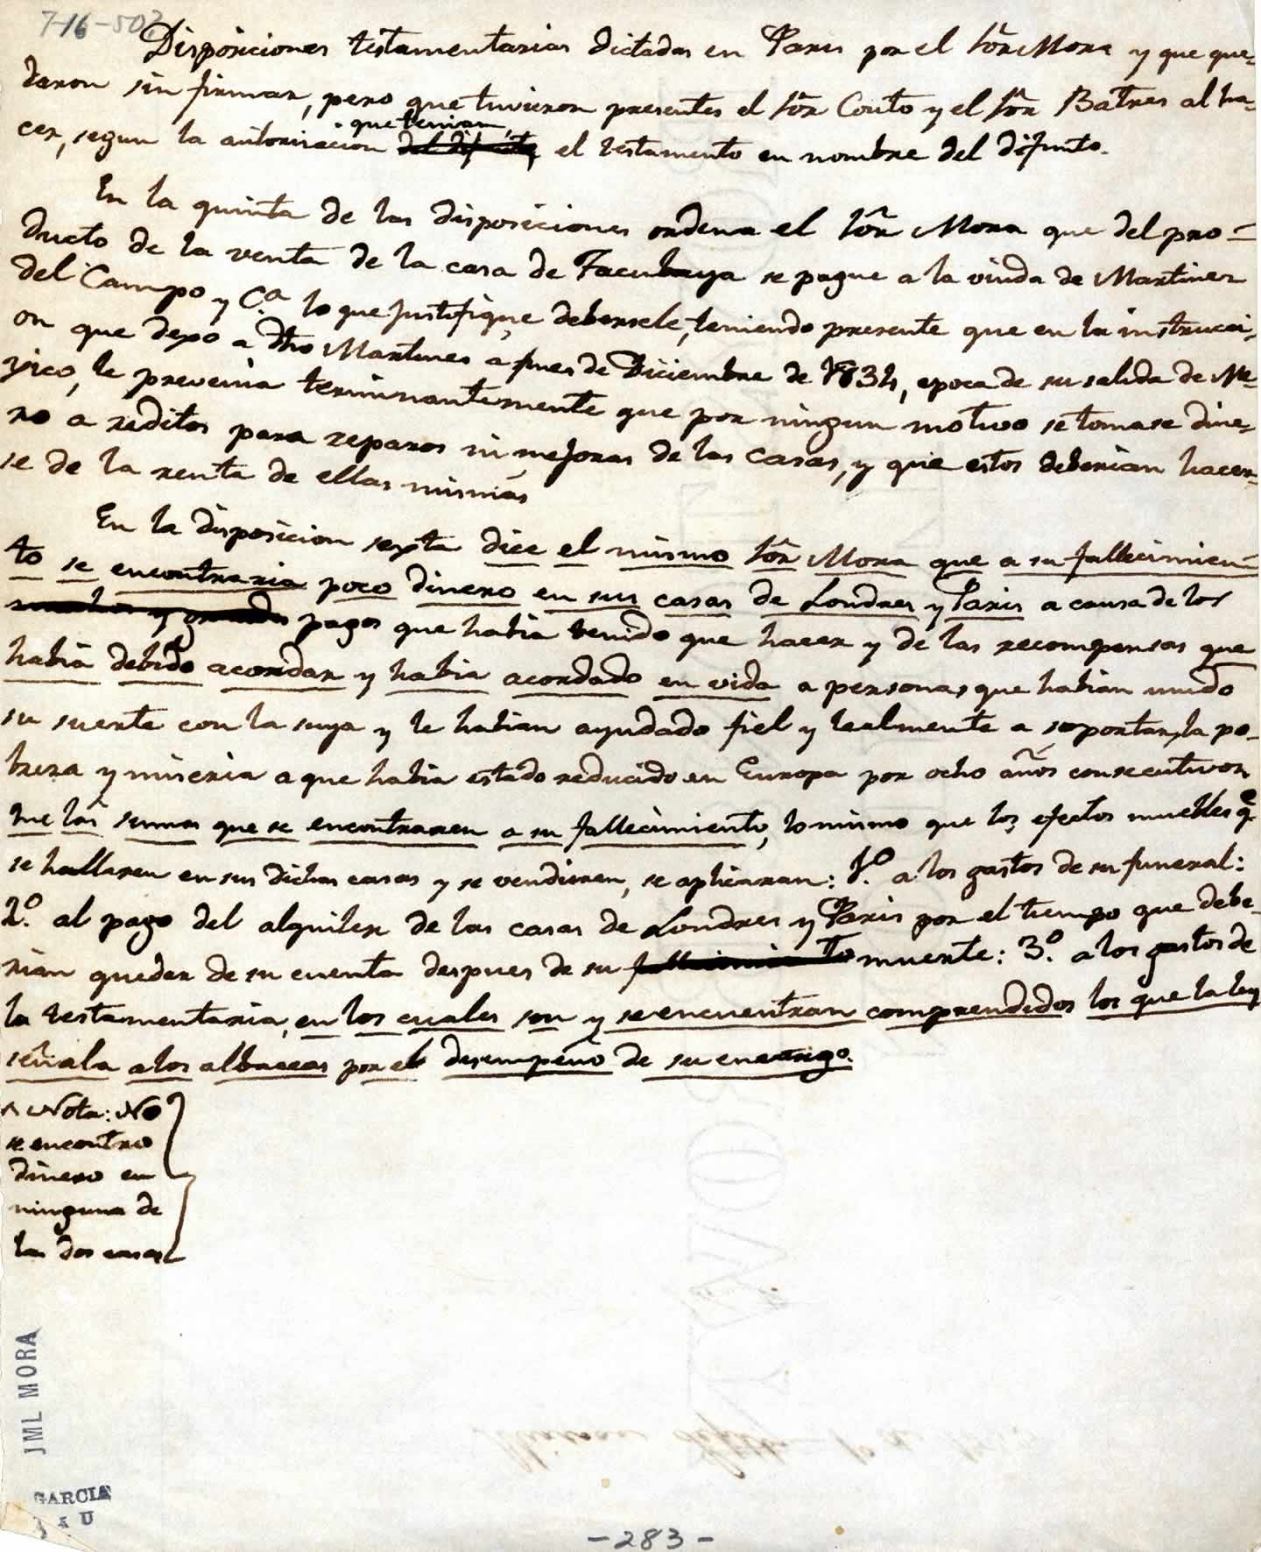 7-16-502
Disposiciones testamentarias dictadas en Paris por el Sõr Mora y que que-
daron sin firmar, pero que tuvieron presentes el Sõr Couto y el Sõr Batres al ha-
que tenian,
cer, segun la autorizacion el testamento en nombre del difunto.
En la quinta de las disposiciones ordena el Sõr Mora que del pro-
ducto de la venta de la casa de Tacubaya se pague a la viuda de Martinez
del Campo y C.ª lo que justifique debersele, teniendo presente que en la instrucci-
on que dejo a dho Martines a fines de Diciembre de 1834, epoca de su salida de Me-
xico, le prevenia terminantemente que por ningun motivo se tomase dine-
ro a reditos para reparos ni mejoras de las casas, y que estos deberian hacer-
se de la renta de ellas mismas
En la disposicion sexta dice el mismo Sõr Mora que a su fallecimien-
to se encontraria poco dinero en sus casas de Londres y Paris a causa de los
pagos que habia tenido que hacer y de las recompensas que
habia debido acordar y habia acordado en vida a personas que habian unido
su suerte con la suya y le habian ayudado fiel y lealmente a soportar la po-
breza y miseria a que habia estado reducido en Europa por ocho años consecutivos
que las sumas que se encontraren a su fallecimiento, lo mismo que los efectos muebles q.e
se hallaren en sus dichas casas y se vendieren, se aplicaran: 1.º a los gastos de su funeral:
2.º al pago del alquiler de las casas de Londres y Paris por el tiempo que debe-
rian quedar de su cuenta despues de su muerte: 3.º a los gastos de
la testamentaria, en los cuales son y se encuentran comprendidos los que la ley
señala a los albaceas por el desempeño de su encargo.
^ Nota: No
se encontro
dinero en
ninguna de
las dos casas
JML MORA
GARCIA
-283-